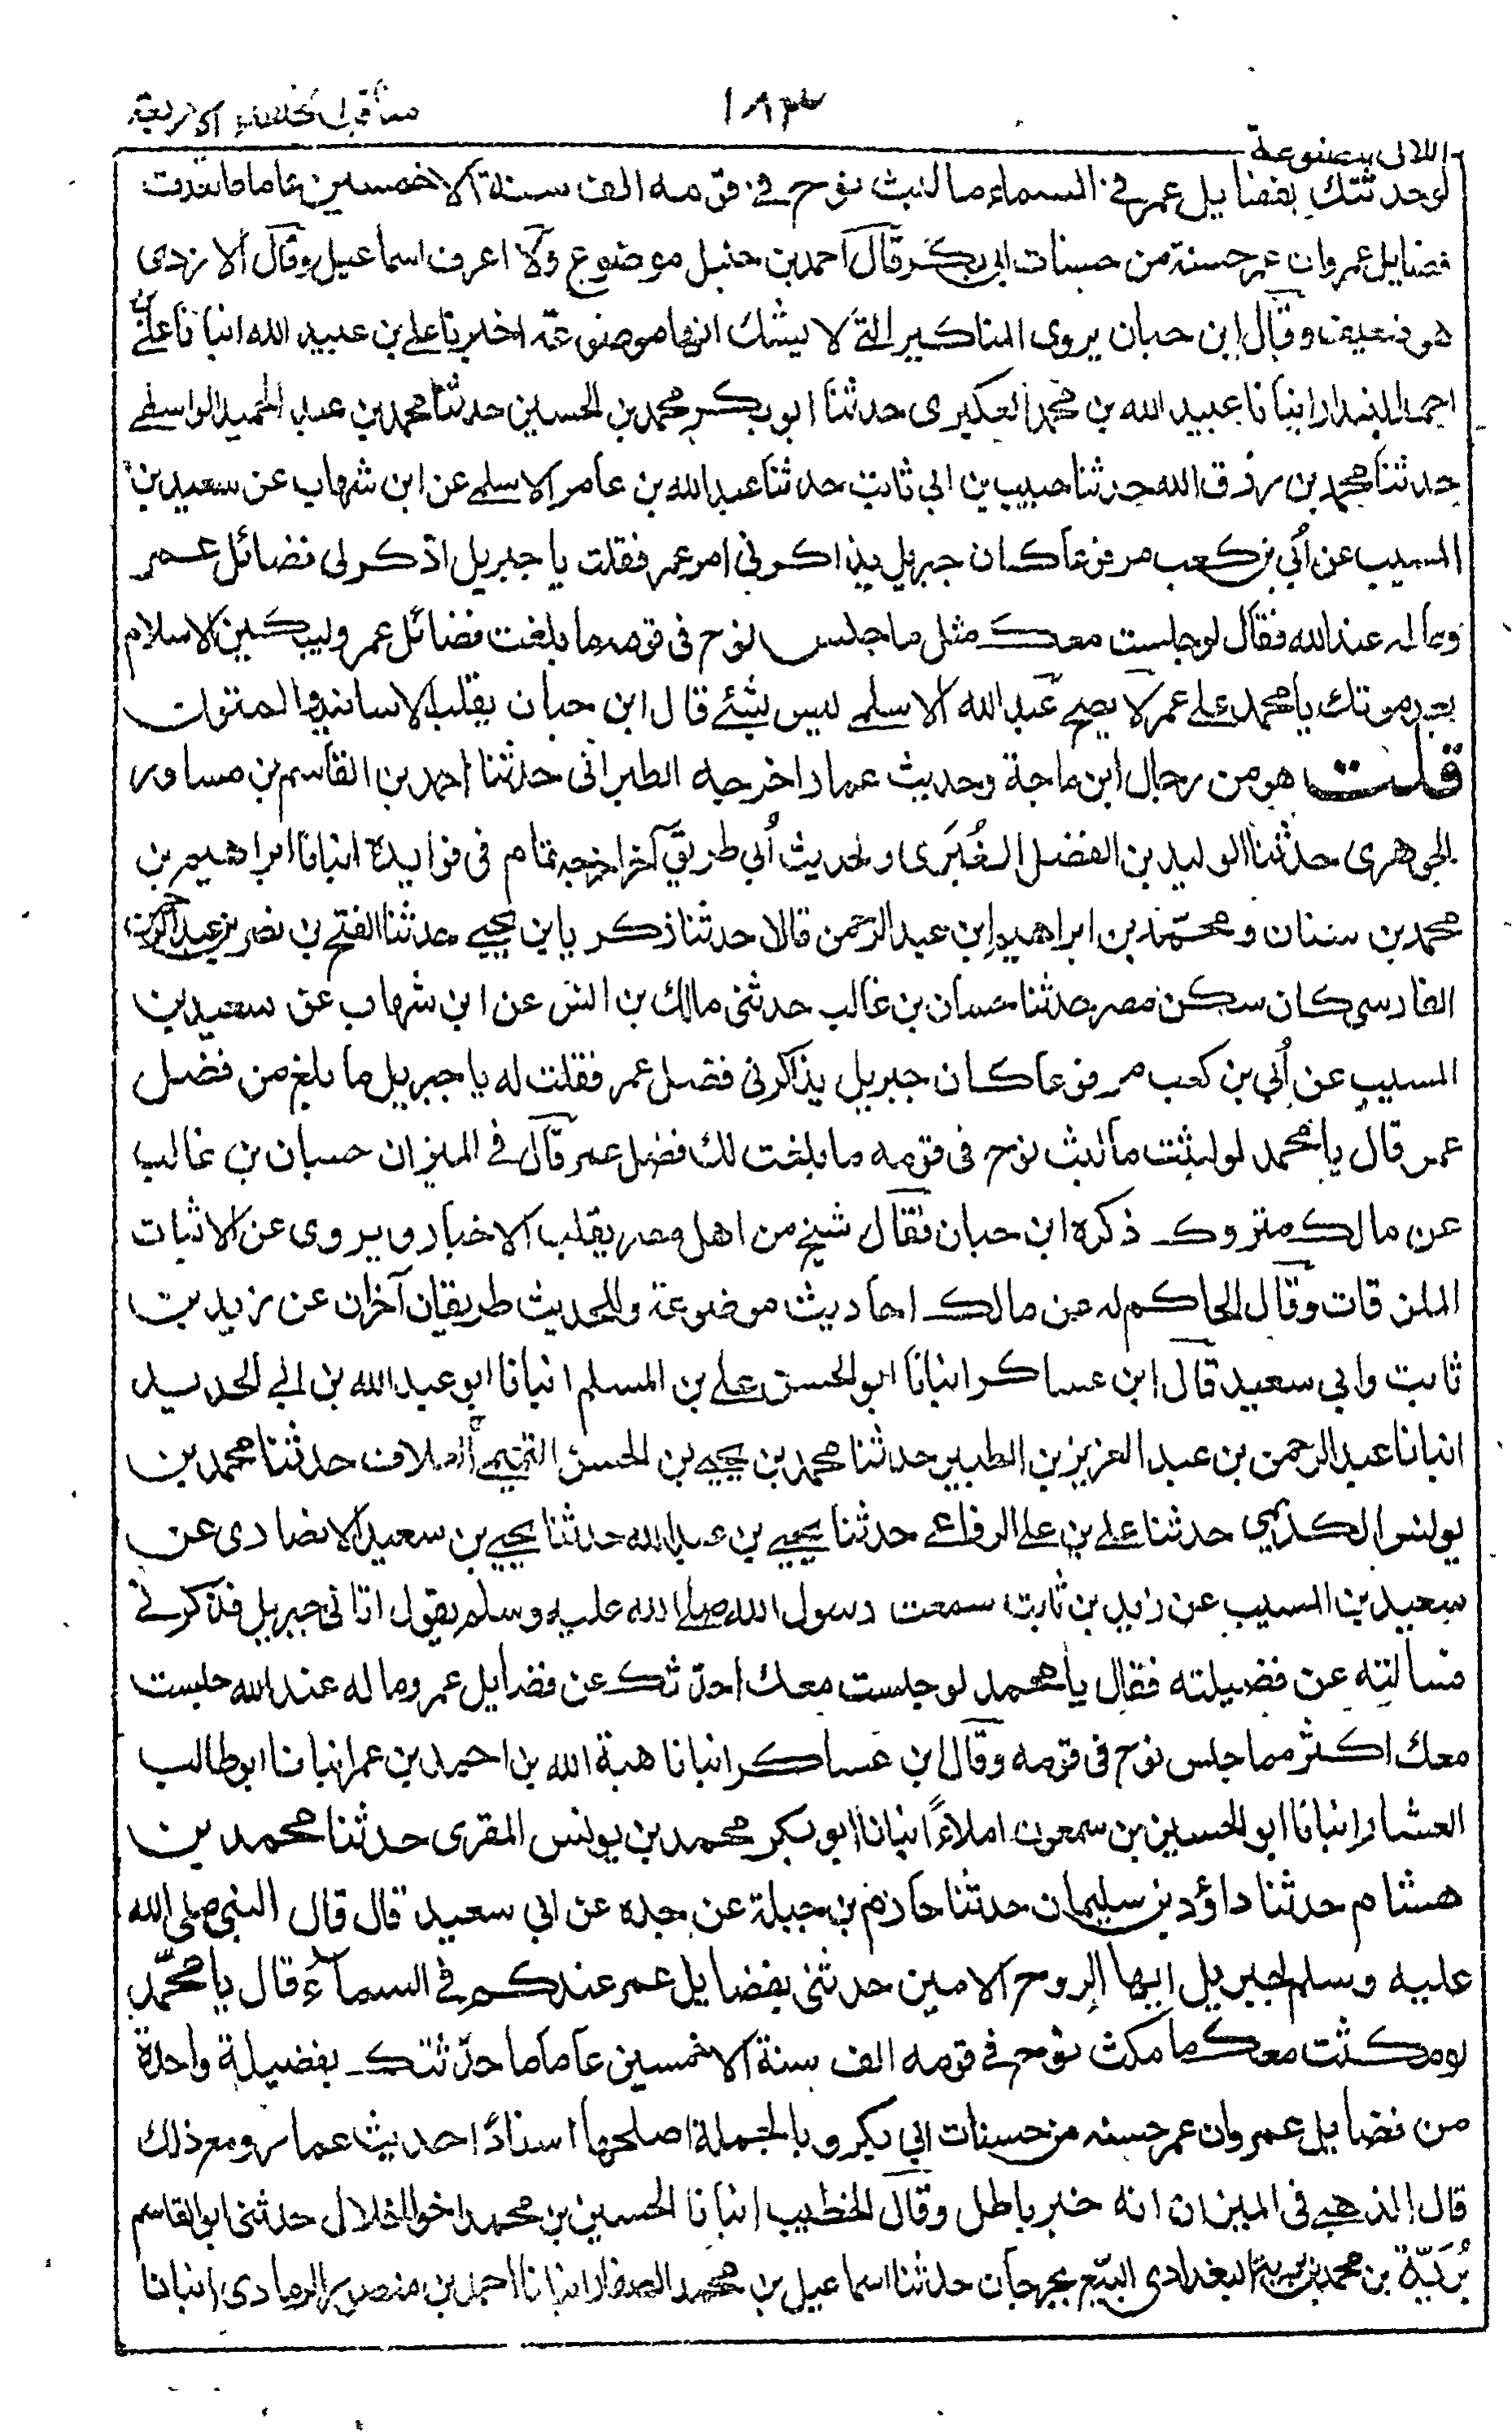 مناقب الخلفاء الاربعة
١٨٣
اللالى المصنوعة
لوحدثتك بفضايل عمر فى السماء ما لبث نوح فى قومه الف سنة الا خمسين عاما ما نفدت
فضايل عمر وان عمر حسنة من حسنات ابى بكر قال احمد بن حنبل موضوع ولا اعرف اسماعيل وقال الازدى
هو ضعيف وقال ابن حبان يروى المناكير التى لا يشك انها موضوعة اخبرنا على بن عبيد الله انبانا على بن
احمد البندار انبانا عبيد الله بن محمد العكبرى حدثنا ابو بكر محمد بن الحسين حدثنا محمد بن عبد الحميد الواسطے
حدثنا محمد بن رزق الله حدثنا حبيب بن ابى ثابت حدثنا عبد الله بن عامر الاسلمے عن ابن شهاب عن سعيد بن
المسيب عن أبي بن كعب مرفوعا كان جبريل يذاكرنى امر عمر فقلت يا جبريل اذكر لى فضائل عمر
وما له عند الله فقال لو جلست معك مثل ما جلس نوح فى قومه ما بلغت فضائل عمر وليبكين الاسلام
بعد موتك يا محمد على عمر لا يصح عبد الله الاسلمے ليس بشئے قال ابن حبان يقلب الاسانيد والمتون
قلت هو من رجال ابن ماجة وحديث عمار اخرجه الطبرانى حدثنا احمد بن القاسم بن مساور
الجوهرى حدثنا الوليد بن الفضل العُنَزى ولحديث أبي طريق آخر اخرجه تمام فى فوايده انبانا ابراهيم بن
محمد بن سنان ومحمد بن ابراهيم ابن عبد الرحمن قالا حدثنا زكريا بن يحيے حدثنا الفتح بن نصر بن عبد الرحمن
الفارسى كان سكن مصر حدثنا حسان بن غالب حدثنى مالك بن انس عن ابن شهاب عن سعيد بن
المسيب عن أبي بن كعب مرفوعا كان جبريل يذاكرنى فضل عمر فقلت له يا جبريل ما بلغ من فضل
عمر قال يا محمد لو لبثت ما لبث نوح فى قومه ما بلغت لك فضل عمر قال فى الميزان حسان بن غالب
عن مالك متروك ذكره ابن حبان فقال شيخ من اهل مصر يقلب الاخبار ويروى عن الاثبات
الملزقات وقال الحاكم له عن مالك احاديث موضوعة وللحديث طريقان آخران عن زيد بن
ثابت وابى سعيد قال ابن عساكر انبانا ابو الحسن على بن المسلم انبانا ابو عبد الله بن ابى الحديد
انبانا عبد الرحمن بن عبد العزيز بن الطبيز حدثنا محمد بن يحيے بن الحسن التميمے العلاف حدثنا محمد بن
يونس الكديمى حدثنا على بن على الرفاعے حدثنا يحيے بن عبد الله حدثنا يحيے بن سعيد الانصارى عن
سعيد بن المسيب عن زيد بن ثابت سمعت رسول الله صلى الله عليه وسلم يقول اتانى جبريل فذكر لى
فسالته عن فضيلته فقال يا محمد لو جلست معك احدثك عن فضايل عمر وما له عند الله جلست
معك اكثر مما جلس نوح فى قومه وقال ابن عساكر انبانا هبة الله بن احمد بن عمر انبانا ابو طالب
العشارى انبانا ابو الحسين بن سمعون املاءً انبانا ابو بكر محمد بن يونس المقرى حدثنا محمد بن
هشام حدثنا داؤد بن سليمان حدثنا حازم بن جبلة عن جده عن ابى سعيد قال قال النبى صلى الله
عليه وسلم لجبريل ايها الروح الامين حدثنى بفضايل عمر عندكم فى السماء قال يا محمد
لو مكثت معك ما مكث نوح فى قومه الف سنة الا خمسين عاما ما حدثتك بفضيلة واحدة
من فضايل عمر وان عمر حسنه من حسنات ابى بكر وبالجملة اصلحها اسنادًا حديث عمار ومع ذلك
قال الذهبے فى الميزان انه خبر باطل وقال الخطيب انبانا الحسين بن محمد اخو الخلال حدثنى ابو القاسم
بُريّة بن محمد بن بريه البغدادى البيّع بجرجان حدثنا اسماعيل بن محمد الصفار انبانا احمد بن منصور الرمادى انبانا